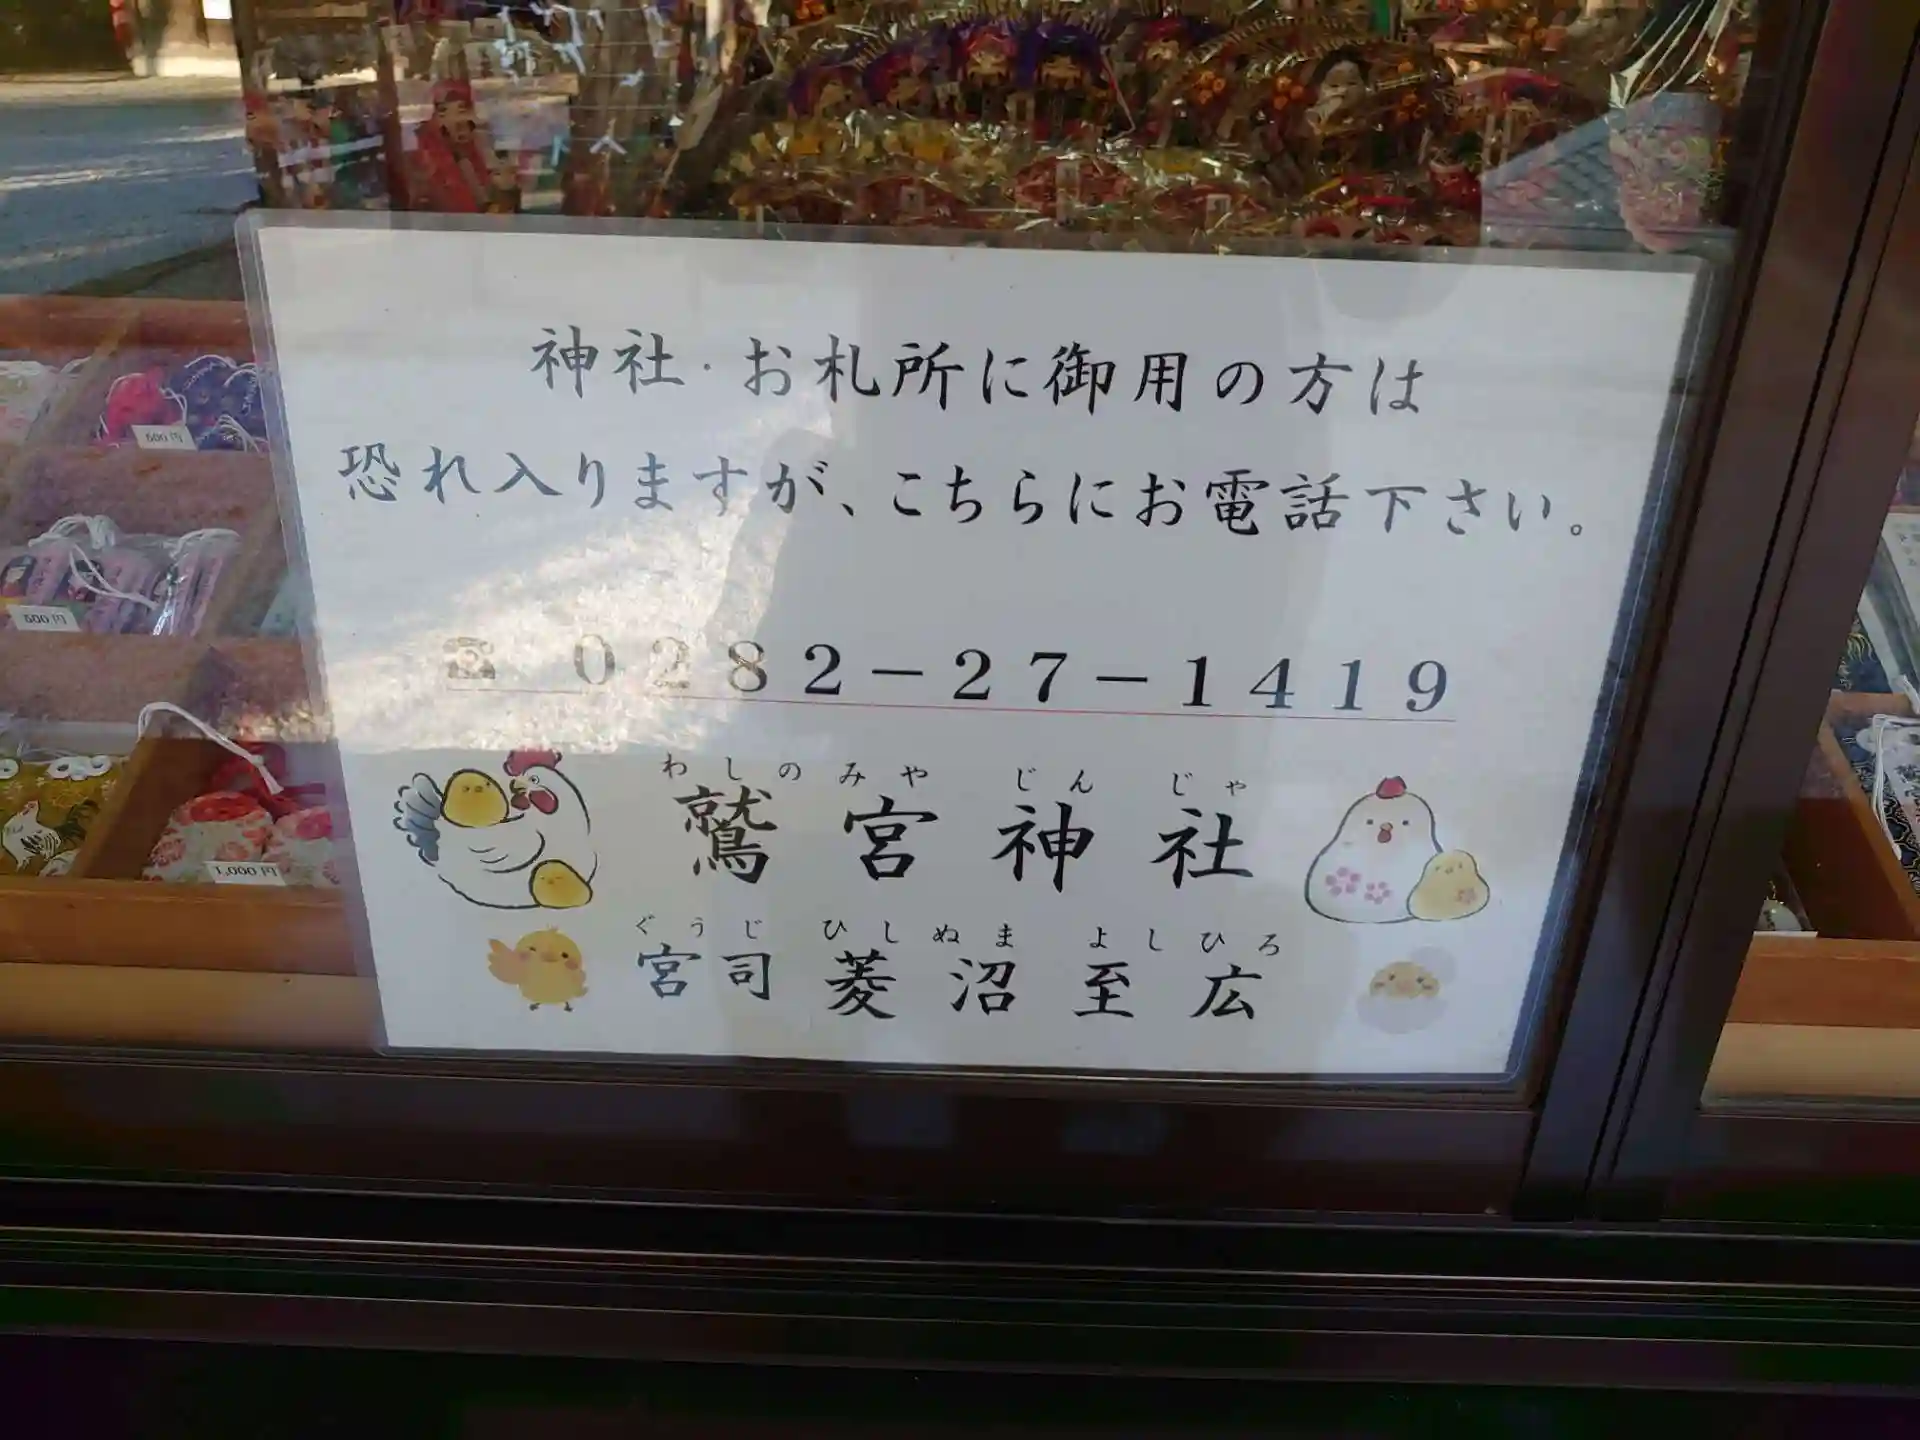 神社・お札所に御用の方は
恐れ入りますが、こちらにお電話下さい。
☎ 0282-27-1419
わしのみや じんじゃ
鷲宮神社
ぐうじ ひしぬま よしひろ
宮司 菱沼 至広
500円
500円
1,000円